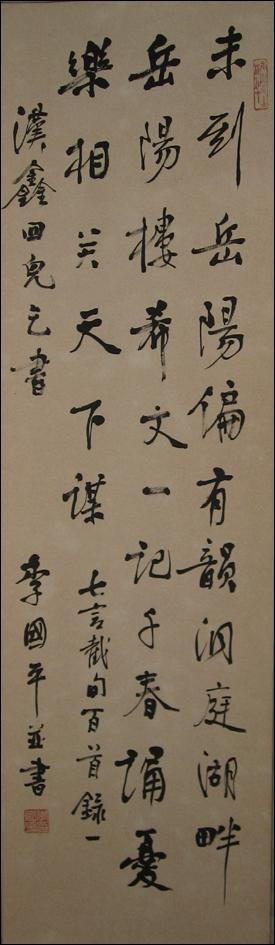 未到岳陽偏有韻洞庭湖畔
岳陽樓希文一記千春誦憂
樂相关天下謀
七言截句百首録一
漢鑫回兒乞書
李國平並書